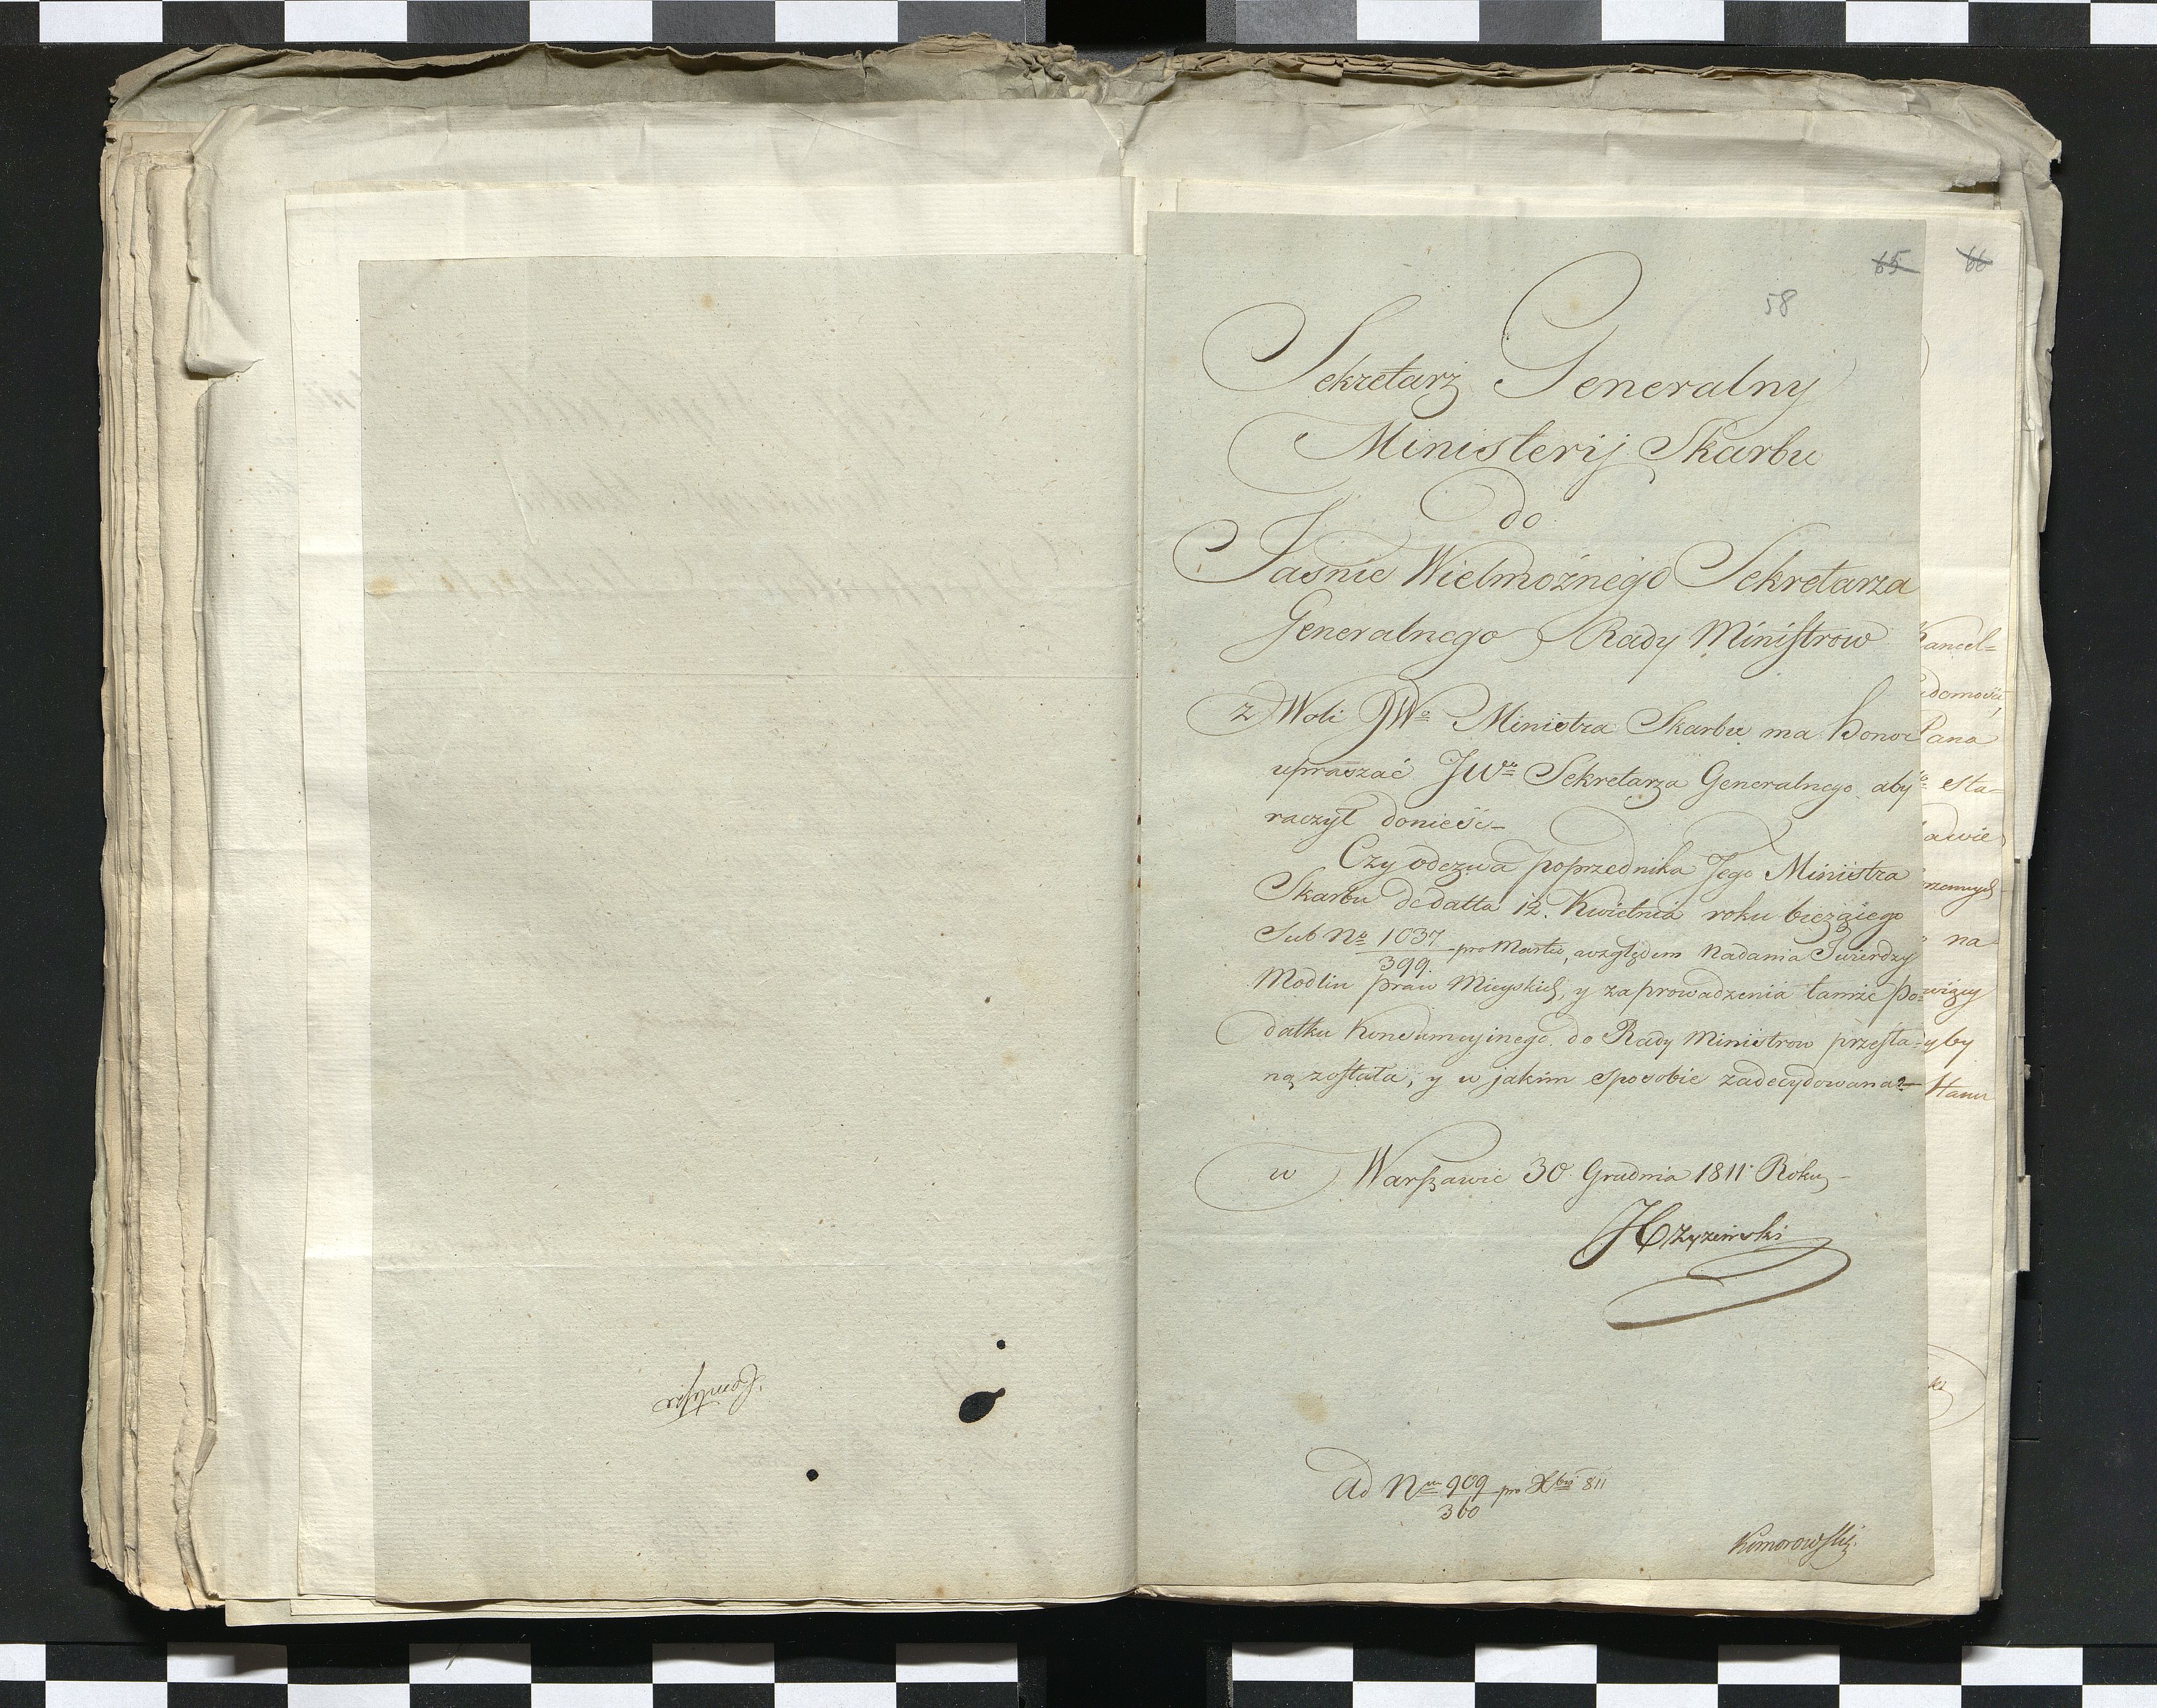 65
66
58
Sekretarz Generalny
Ministerij Skarbu
do
Jaśnie Wielmożnego Sekretarza
Generalnego Rady Ministrow
Z Woli JWo Ministra Skarbu ma honor
upraszać JWo Sekretarza Generalnego, aby
raczył donieść_
Czy odezwa poprzednika Jego Ministra
Skarbu de datta 12. Kwietnia roku bieżącego
Sub No 1037/399. pro Martio, względem Nadania Twierdzy
Modlin praw Mieyskich, y zaprowadzenia tamże po=
datku Konsumcyinego do Rady Ministrow przesła=
ną została, y w jakim sposobie zadecydowana?—
w Warszawie 30 Grudnia 1811 Roku_
Ad Num 909/360 pro Xbri 811
Komorowski
Kancel=
Pana
sta=
awie
na
yby
Stanu